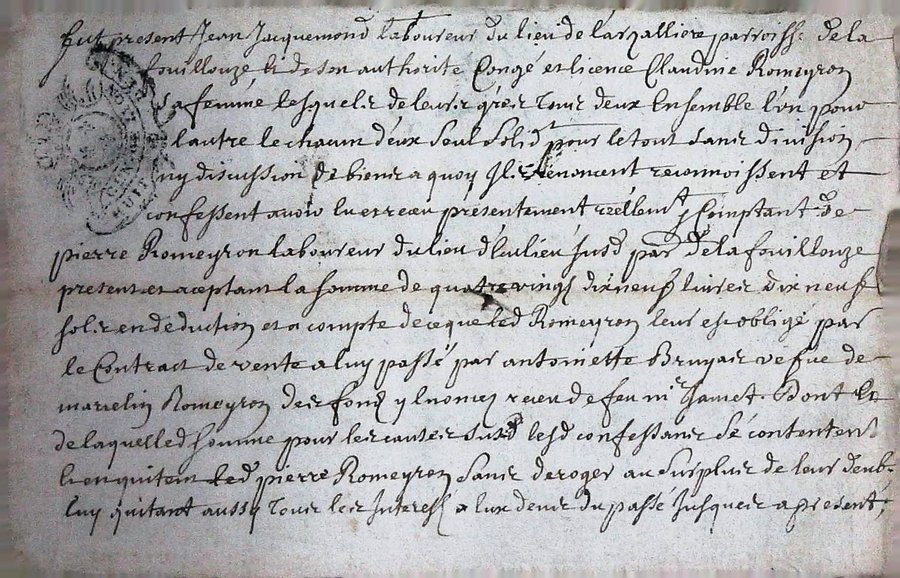 fut present Jean Jacquemond laboureur du lieu de larzalliere parroisse de la
fouillouze & de son authorite Congé et licence Claudine Romeyron
sa femme lesquels de leurs grés Tous deux Ensemble l'un pour
l'autre le chacun d'eux seul solid.t pour le tout sans division
ny discussion de biens a quoy Ils rénoncent reconnoissent et
confessent avoir heu et receu présentement réellem.t Comptant de
pierre Romeyron laboureur du lieu d'Eulieu susd. par. de la fouillouze
present et aceptant la somme de quatre vingt dix neuf livres dix neuf
sols en deduction et a compte de ce que led Romeyron leur est obligé par
le Contract de vente a luy passé par antoinette Bruyas vefue de
marcelin Romeyron des fond y enoncés receu de feu m.e Jamet. Dont et
de laquelle d somme pour les causes susd lesd confessans se contentent
en quitent led pierre Romeyron sans deroger au surplus de leur deub
luy quitant aussy Tous les Interests a eux deus du passé Jusques a present,